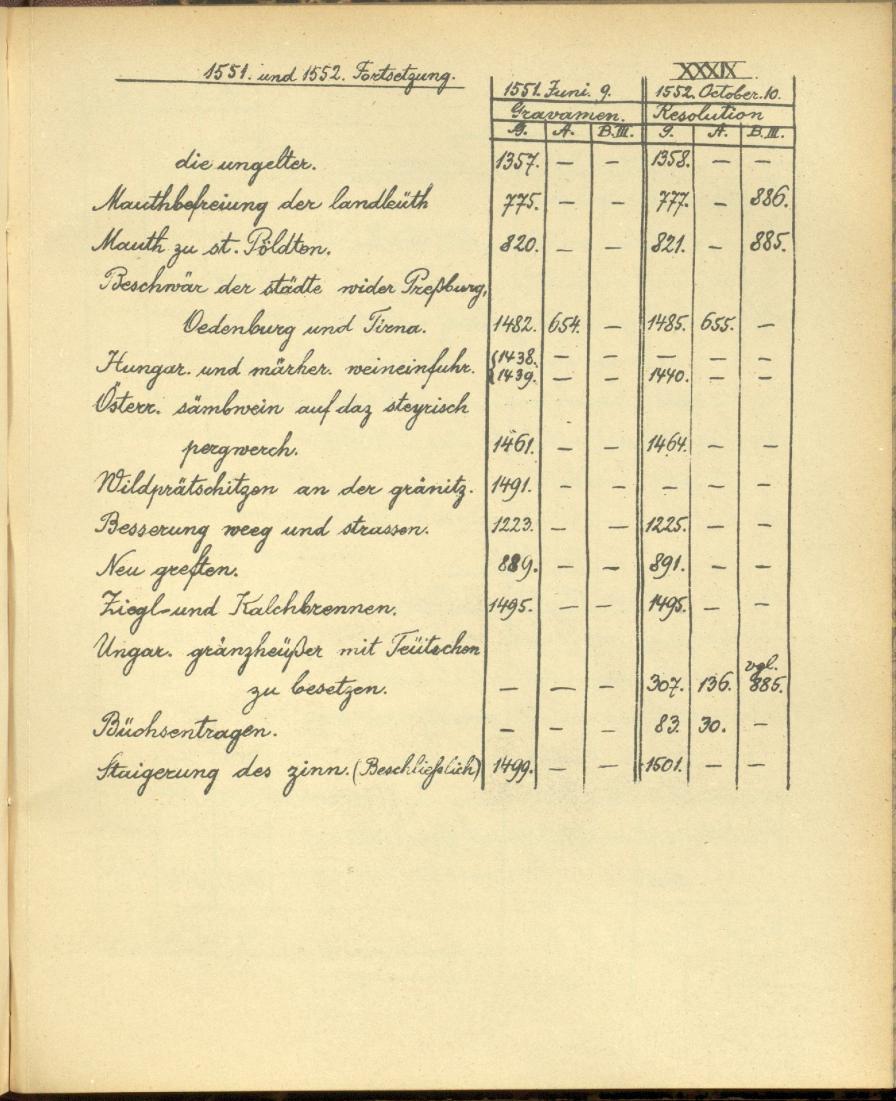 XXXIX
1551. und 1552. Fortsetzung.
1551. Juni. 9. 1552. October. 10.
Gravamen. Resolution
G. A. B.III. G. A. B.III.
die ungelter. 1357. — — 1358. — —
Mauthbefreiung der landleüth 775. — — 777. — 886.
Mauth zu st. Pöldten. 820. — — 821. — 885.
Beschwär der städte wider Preßburg,
Oedenburg und Tirna. 1482. 654. — 1485. 655. —
{1438. — — — — —
Hungar. und märher. weineinfuhr. {1439. — — 1440. — —
Österr. sämbwein auf daz steyrisch
pergwerch. 1461. — — 1464. — —
Wildprätschitzen an der gränitz. 1491. — — — — —
Besserung weeg und strassen. 1223. — — 1225. — —
Neu greften. 889. — — 891. — —
Ziegl- und Kalchbrennen. 1495. — — 1495. — —
Ungar. gränzheüßer mit Teütschen
vgl.
zu besetzen. — — — 307. 136. 885.
Büchsentragen. — — — 83. 30. —
Staigerung des zinn. (Beschließlich) 1499. — — 1501. — —